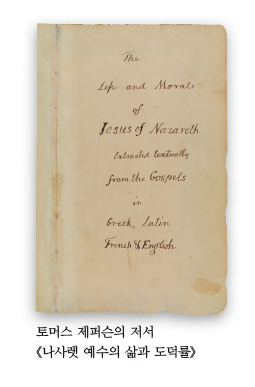 The
Life and Morals
of
Jesus of Nazareth
Extracted textually
from the Gospels
in
Greek, Latin
French & English.
토머스 제퍼슨의 저서
《나사렛 예수의 삶과 도덕률》